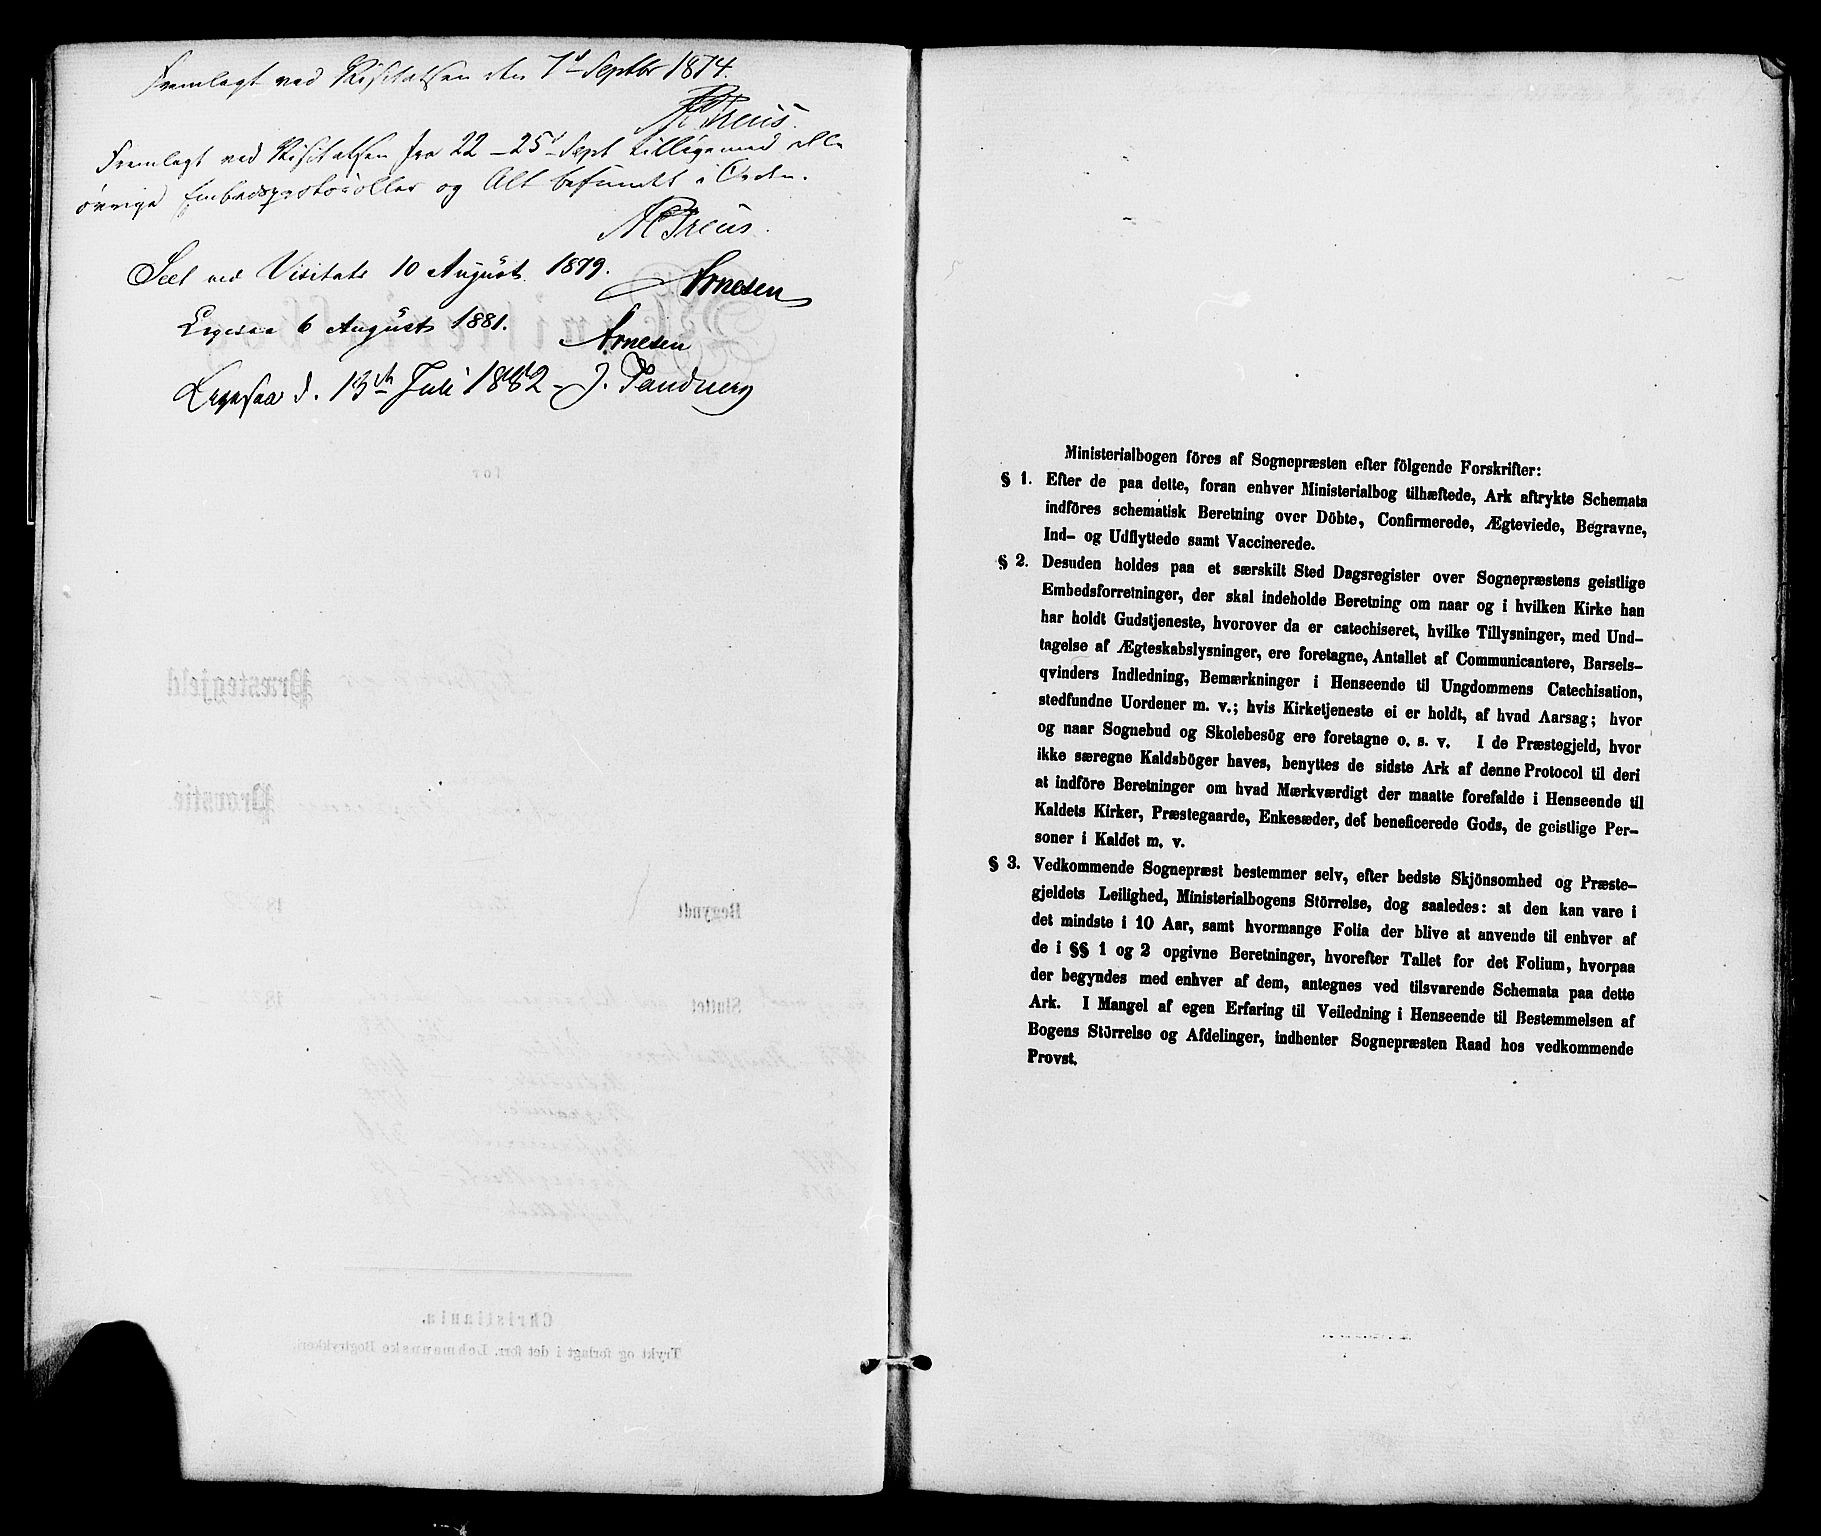 Fremlagt ved Visitatsen den 7d Septbr 1874.
AC Preus.
Fremlagt ved Visitatsen fra 22-25d Sept tilligemed alle
övrige Embedsprotocoller og Alt befundet i Orden.
AC Preus.
Seet ved Visitats 10 August 1879. Arnesen
Ligesaa 6 August 1881. Arnesen
Ligesaa d. 13de Juli 1882 - J. Sandberg
for
Præstegjeld
Provstie.
Begyndt 18
Sluttet 18
Christiania.
Trykt og forlagt i det forr. Lehmannske Bogtrykkeri.
Ministerialbogen föres af Sognepræsten efter fölgende Forskrifter:
§ 1. Efter de paa dette, foran enhver Ministerialbog tilhæftede, Ark aftrykte Schemata
indföres schematisk Beretning over Döbte, Confirmerede, Ægteviede, Begravne,
Ind- og Udflyttede samt Vaccinerede.
§ 2. Desuden holdes paa et særskilt Sted Dagsregister over Sognepræstens geistlige
Embedsforretninger, der skal indeholde Beretning om naar og i hvilken Kirke han
har holdt Gudstjeneste, hvorover da er catechiseret, hvilke Tillysninger, med Und-
tagelse af Ægteskabslysninger, ere foretagne, Antallet af Communicantere, Barsels-
qvinders Indledning, Bemærkninger i Henseende til Ungdommens Catechisation,
stedfundne Uordener m. v.; hvis Kirketjeneste ei er holdt, af hvad Aarsag; hvor
og naar Sognebud og Skolebesög ere foretagne o. s. v. I de Præstegjeld, hvor
ikke særegne Kaldsböger haves, benyttes de sidste Ark af denne Protocol til deri
at indföre Beretninger om hvad Mærkværdigt der maatte forefalde i Henseende til
Kaldets Kirker, Præstegaarde, Enkesæder, det beneficerede Gods, de geistlige Per-
soner i Kaldet m. v.
§ 3. Vedkommende Sognepræst bestemmer selv, efter bedste Skjönsomhed og Præste-
gjeldets Leilighed, Ministerialbogens Störrelse, dog saaledes: at den kan vare i
det mindste i 10 Aar, samt hvormange Folia der blive at anvende til enhver af
de i §§ 1 og 2 opgivne Beretninger, hvorefter Tallet for det Folium, hvorpaa
der begyndes med enhver af dem, antegnes ved tilsvarende Schemata paa dette
Ark. I Mangel af egen Erfaring til Veiledning i Henseende til Bestemmelsen af
Bogens Störrelse og Afdelinger, indhenter Sognepræsten Raad hos vedkommende
Provst.